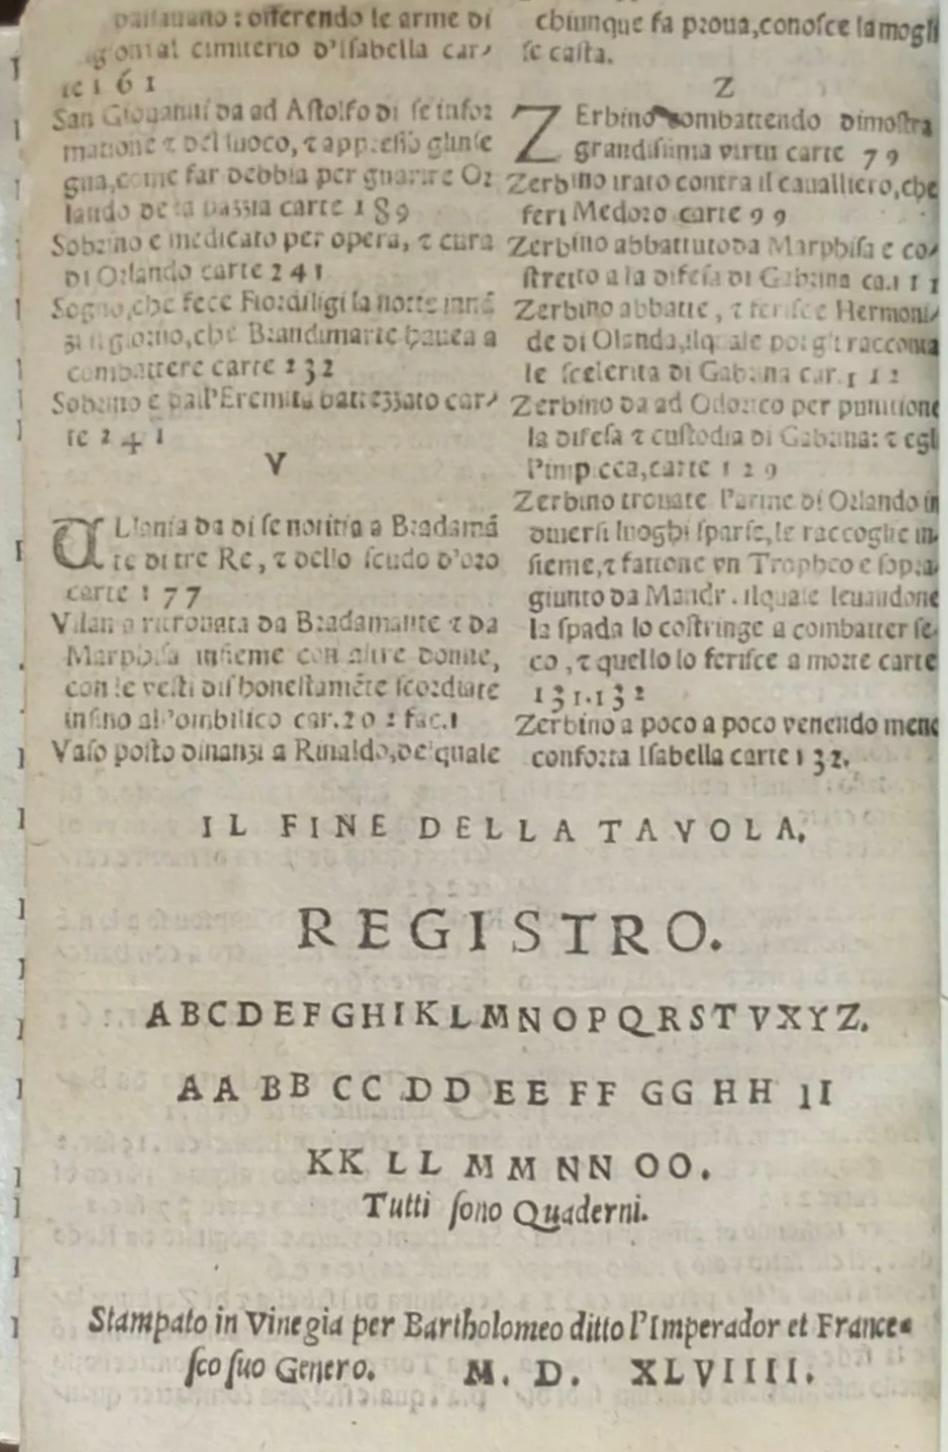 passauano: offerendo le arme di
gioni al cimiterio d'Isabella car-
te 161
San Giouanni da ad Astolfo di se infor
matione ⁊ del luoco, ⁊ appresso gl'inse
gna, come far debbia per guarire Or
lando de la pazzia carte 189
Sobrino e medicato per opera, ⁊ cura
di Orlando carte 241
Sogno, che fece Fiordiligi la notte innā
zi il giorno, che Brandimarte haueа a
combattere carte 232
Sobrino e dall'Eremita battezzato car-
te 241
V
ULlania da di se notitia a Bradamā
te di tre Re, ⁊ dello scudo d'oro
carte 177
Vllania ritrouata da Bradamante ⁊ da
Marphisa insieme con altre donne,
con le vesti dishonestamēte scordiate
insino al'ombilico car.202 fac.1
Vaso posto dinanzi a Rinaldo, del quale
chiunque fa proua, conosce la mogli
se casta.
Z
ZErbino combattendo dimostra
grandissima virtu carte 79
Zerbino irato contra il caualliero, che
feri Medoro carte 99
Zerbino abbattuto da Marphisa e co-
stretto a la difesa di Gabrina ca.111
Zerbino abbatte, ⁊ ferisce Hermoni-
de di Olanda, ilquale poi gli racconta
le scelerita di Gabrina car.112
Zerbino da ad Odorico per punitione
la difesa ⁊ custodia di Gabrina: ⁊ egli
l'impicca, carte 129
Zerbino trouate l'arme di Orlando in
diuersi luoghi sparse, le raccoglie in-
sieme, ⁊ fattone vn Tropheo e sopra
giunto da Mandr. ilquale leuandone
la spada lo costringe a combatter se-
co, ⁊ quello lo ferisce a morte carte
131.132
Zerbino a poco a poco venendo meno
conforta Isabella carte 132.
IL FINE DELLA TAVOLA.
REGISTRO.
ABCDEFGHIKLMNOPQRSTVXYZ.
AA BB CC DD EE FF GG HH II
KK LL MM NN OO.
Tutti sono Quaderni.
Stampato in Vinegia per Bartholomeo ditto l'Imperador et France-
sco suo Genero. M. D. XLVIIII.